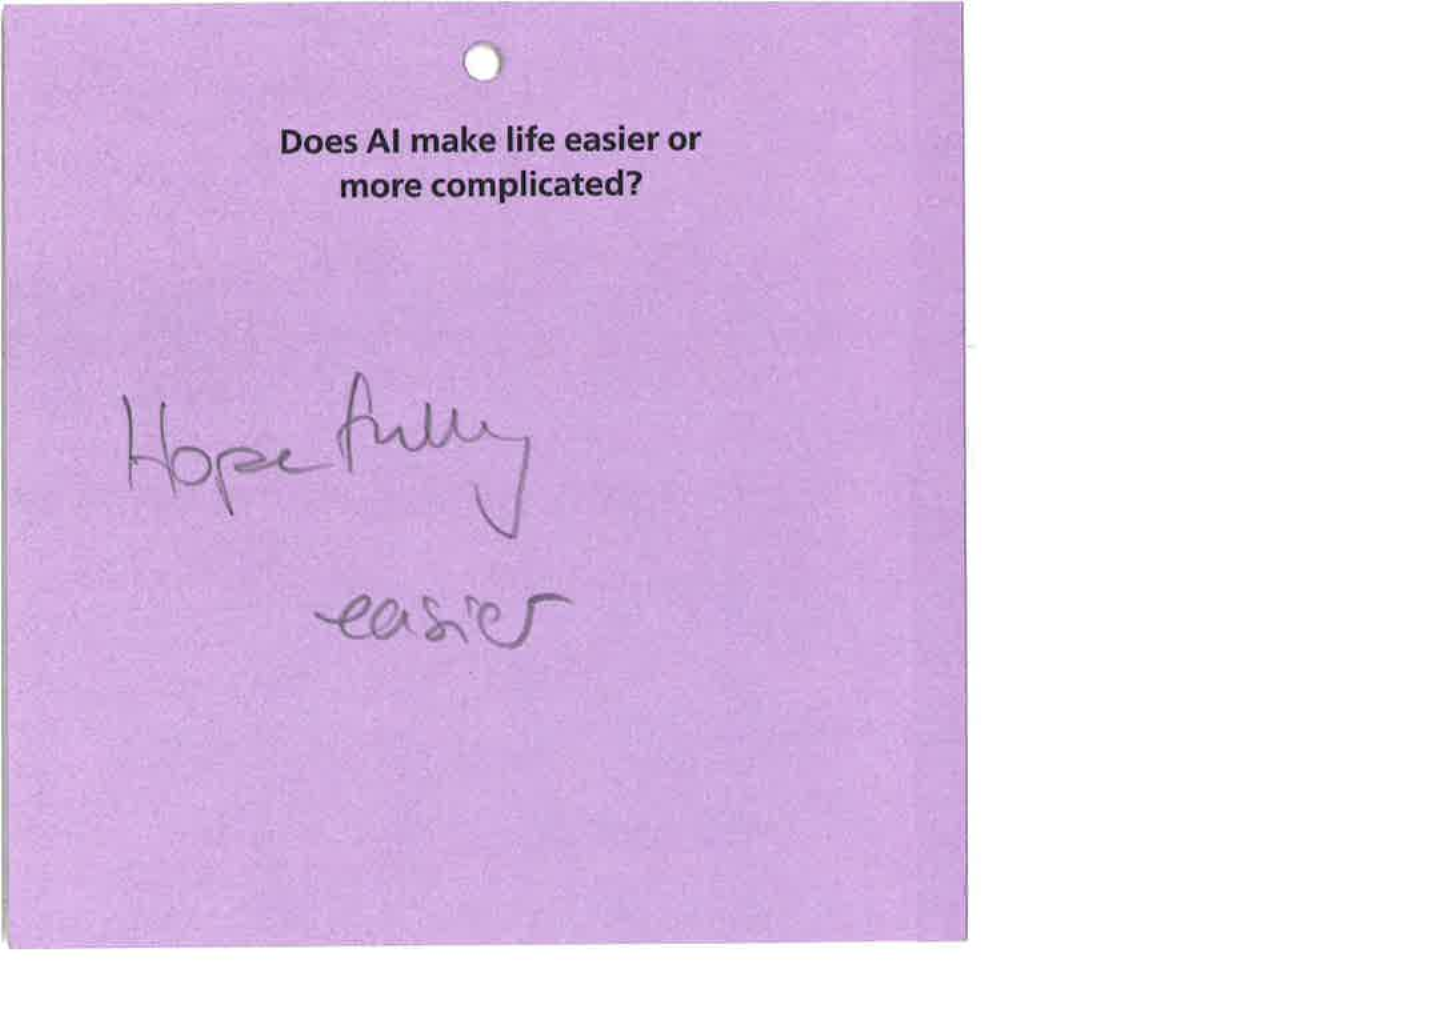 Does AI make life easier or
more complicated?
Hopefully
easier